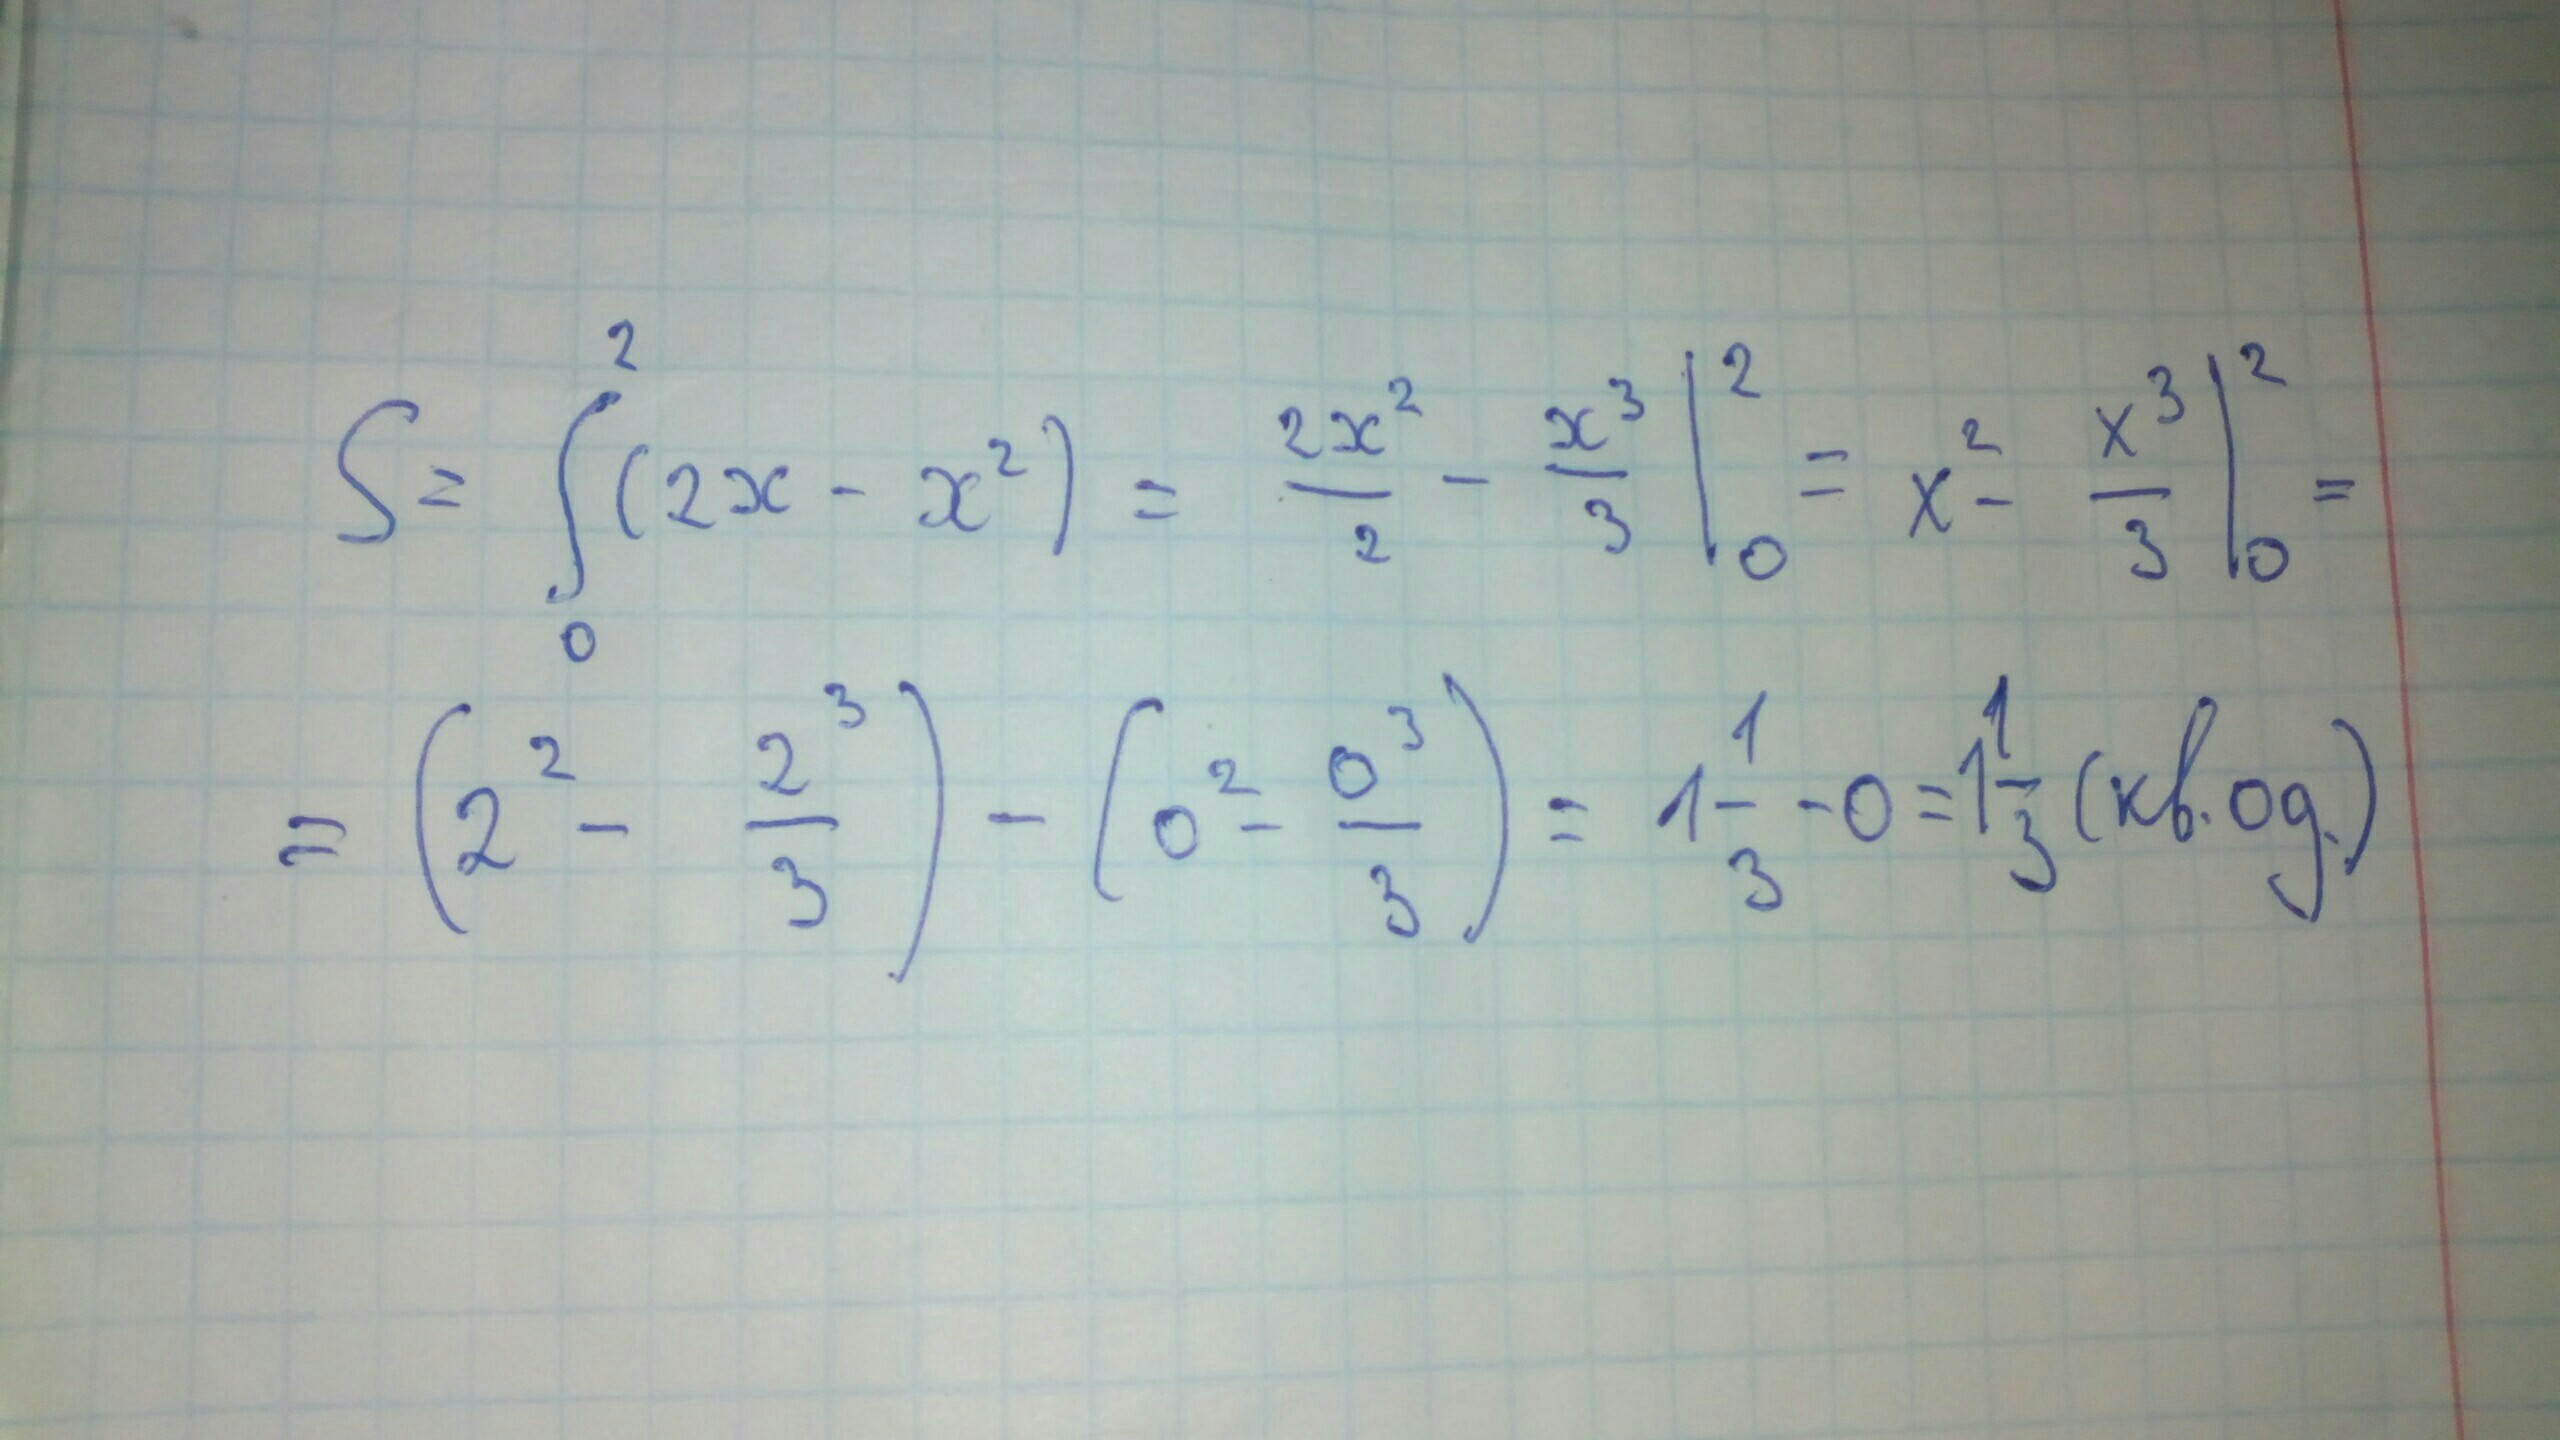 S = ∫₀² (2x - x²) = 2x²/2 - x³/3 |₀² = x² - x³/3 |₀² =
= (2² - 2³/3) - (0² - 0³/3) = 1 1/3 - 0 = 1 1/3 (кв. од.)